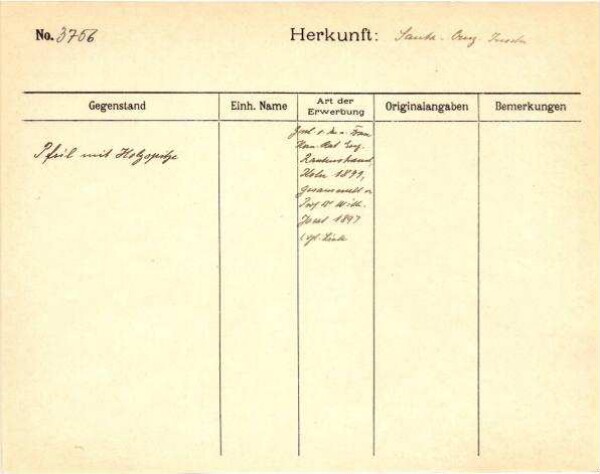 No. 3756
Herkunft: Santa-Cruz Inseln
Gegenstand
Einh. Name
Art der
Erwerbung
Originalangaben
Bemerkungen
Pfeil mit Holzspitze
Frau
Rautenstrauch
Köln 1899,
gesammelt v.
Prof Dr Wilh.
Joest 1897